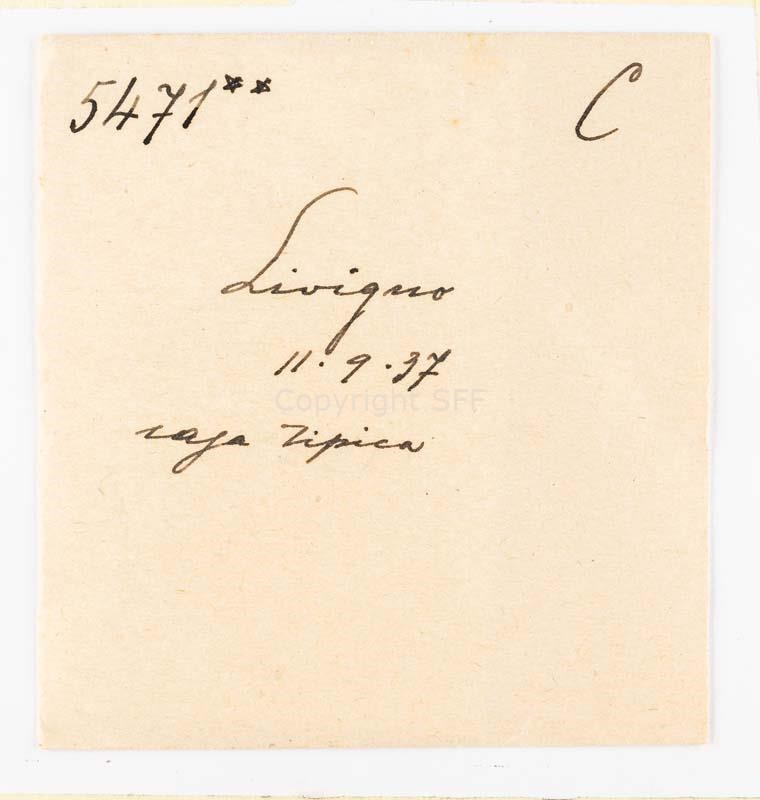 5471** C
Livigno
11.9.37
Copyright SFF
casa tipica